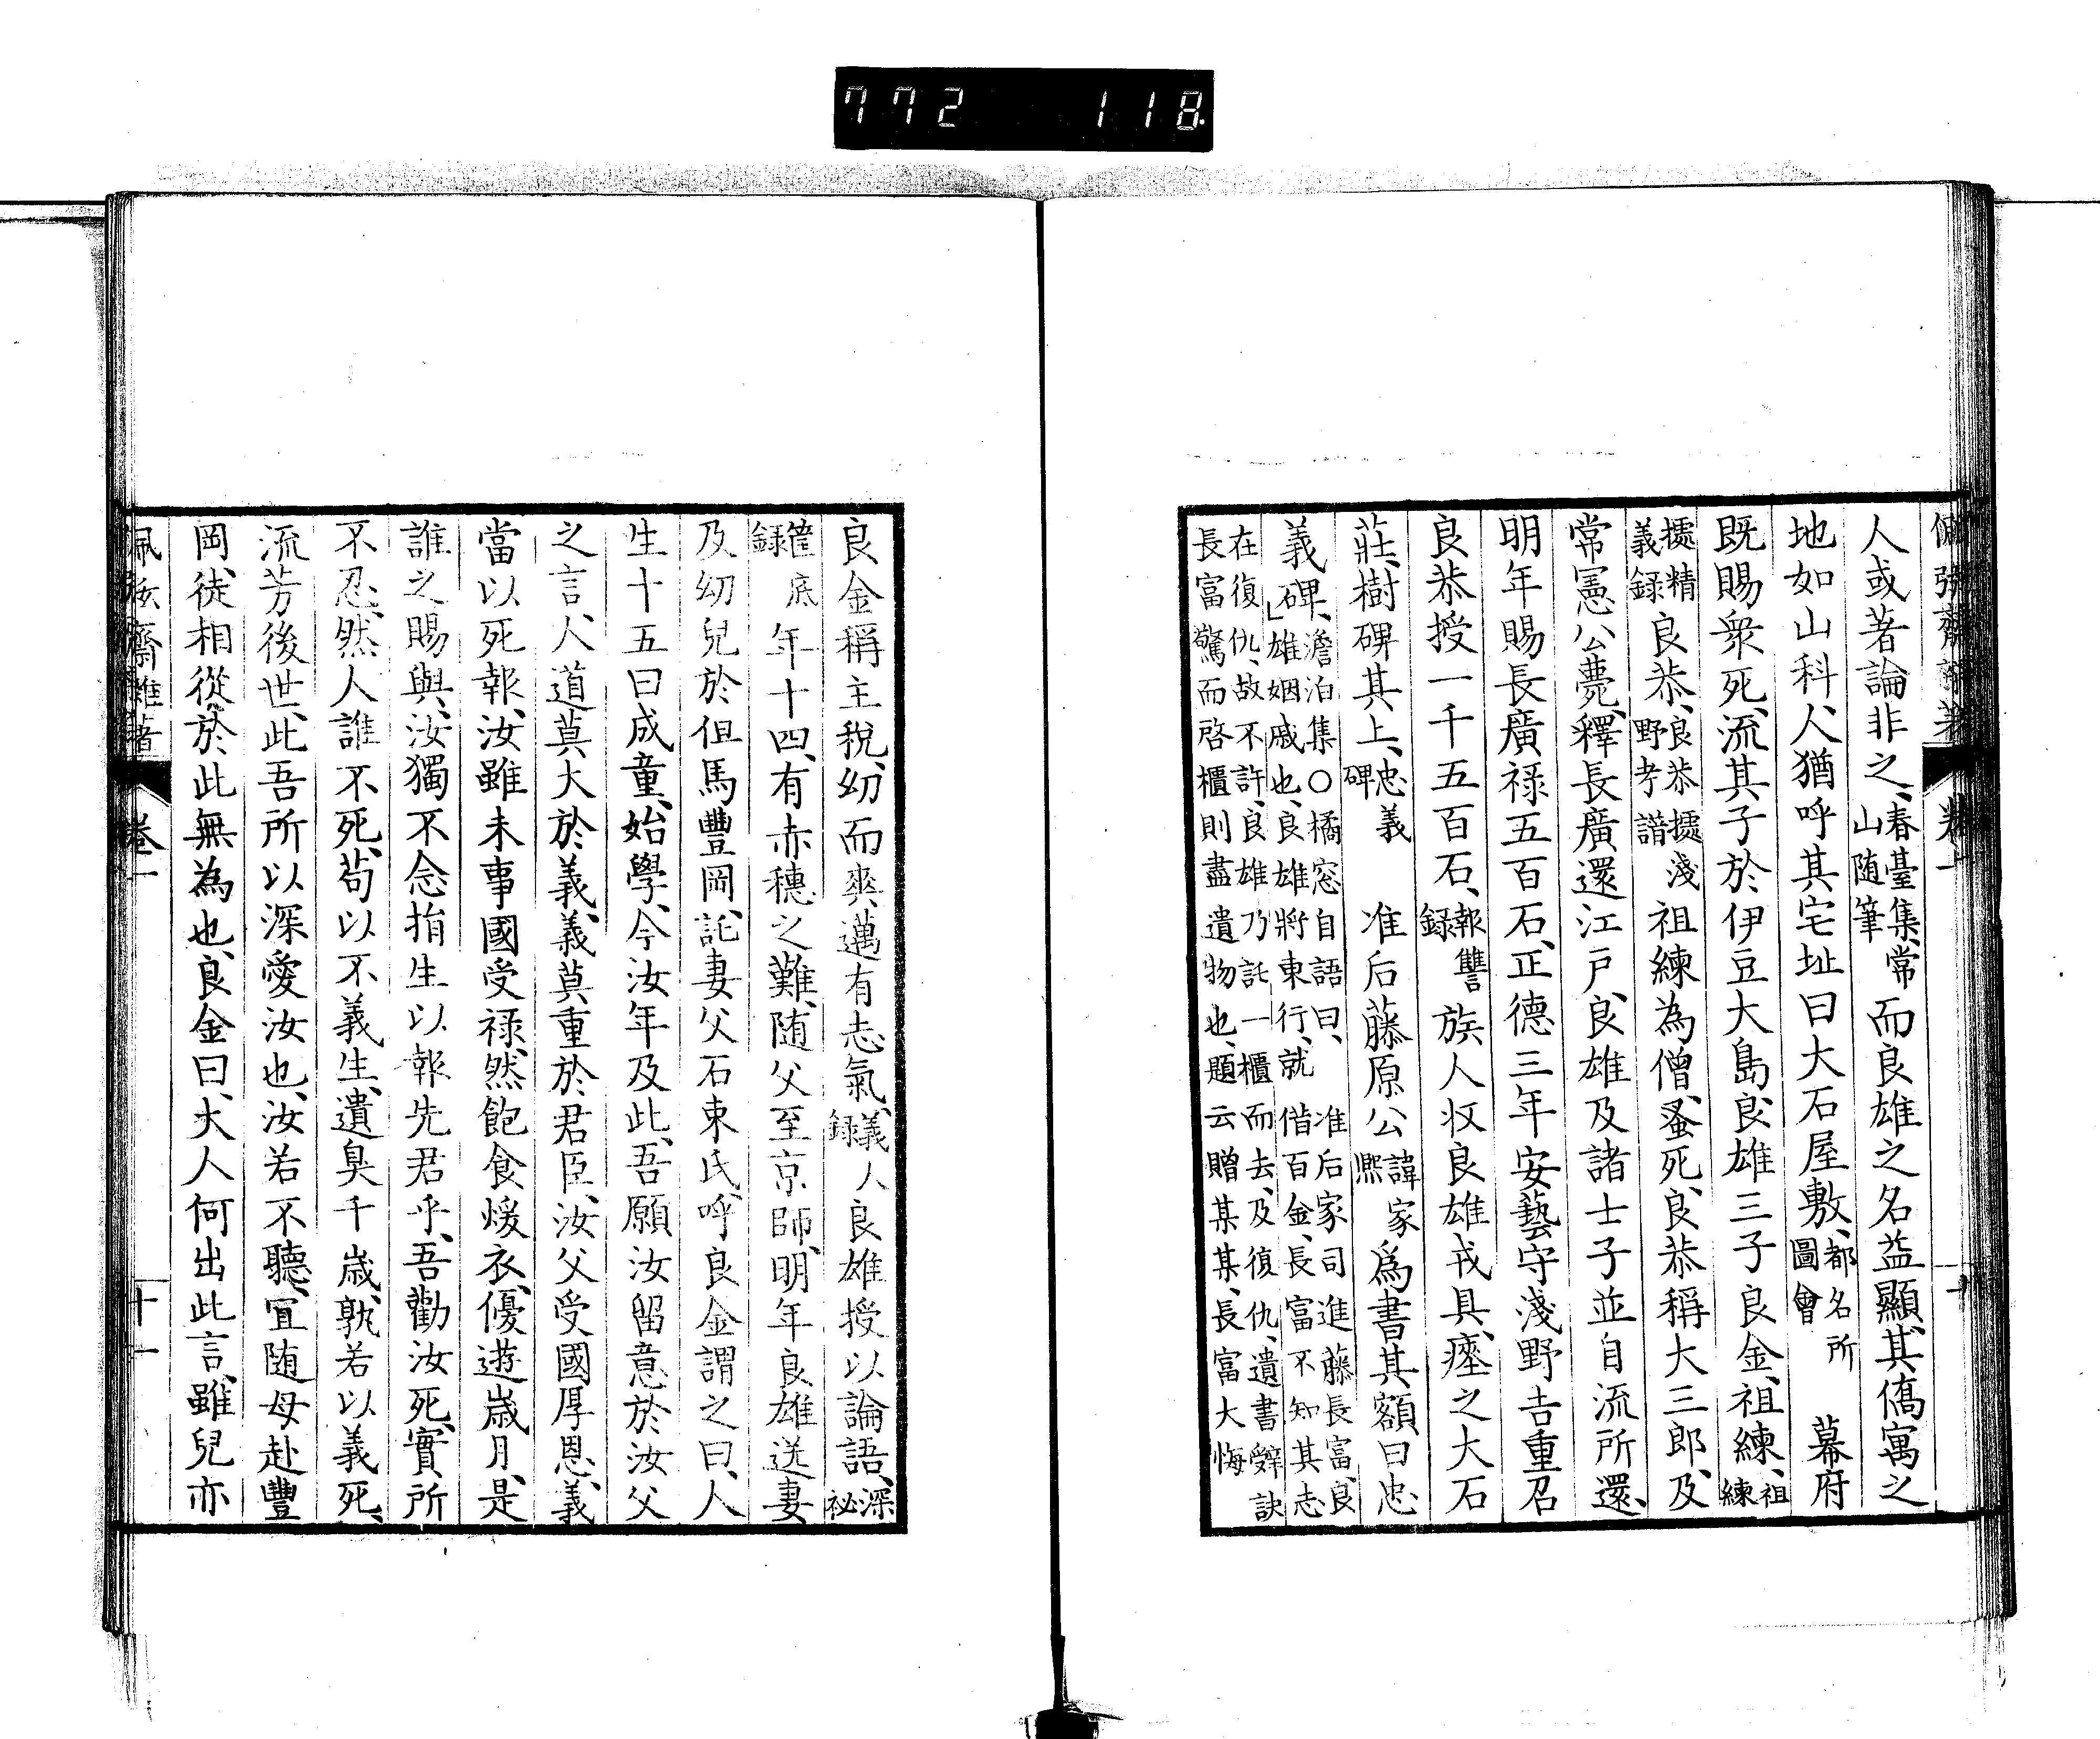 772 118
佩弦齋雜著 卷一 十
人或著論非之、春臺集、常山随筆而良雄之名益顯、其僑寓之
地如山科、人猶呼其宅址曰大石屋敷、都名所圖會 幕府
既賜衆死、流其子於伊豆大島、良雄三子良金、祖練、祖練
據精義録良恭、良恭據淺野考譜祖練為僧、蚤死、良恭稱大三郎、及
常憲公薨、釋長廣還江戸、良雄及諸士子並自流所還、
明年賜長廣禄五百石、正德三年安藝守淺野吉重召
良恭授一千五百石、報讐録族人収良雄戎具、瘞之大石
莊、樹碑其上、忠義碑 准后藤原公諱家熈爲書其額曰忠
義碑、澹泊集○橘窓自語曰、准后家司進藤長富、良
」雄姻戚也、良雄將東行、就偕百金、長富不知其志
在復仇、故不許、良雄乃託一櫃而去、及復仇、遺書辭訣
長富驚而啓櫃則盡遺物也、題云贈某某、長富大悔
良金稱主税、幼而爽邁有志氣、義人録良雄授以論語、深秘
篋底録年十四、有赤穗之難、随父至京師、明年良雄送妻
及幼兒於但馬豐岡、託妻父石束氏、呼良金謂之曰、人
生十五曰成童、始學、今汝年及此、吾願汝留意於汝父
之言、人道莫大於義、義莫重於君臣、汝父受國厚恩、義
當以死報、汝雖未事國受禄、然飽食煖衣、優遊歳月、是
誰之賜與、汝獨不念捐生以報先君乎、吾勸汝死、實所
不忍、然人誰不死、苟以不義生、遺臭千歳、孰若以義死、
流芳後世、此吾所以深愛汝也、汝若不聽、宜随母赴豐
岡、徒相從、於此無為也、良金曰、大人何出此言、雖兒亦
佩弦齋雜著 卷一 十一